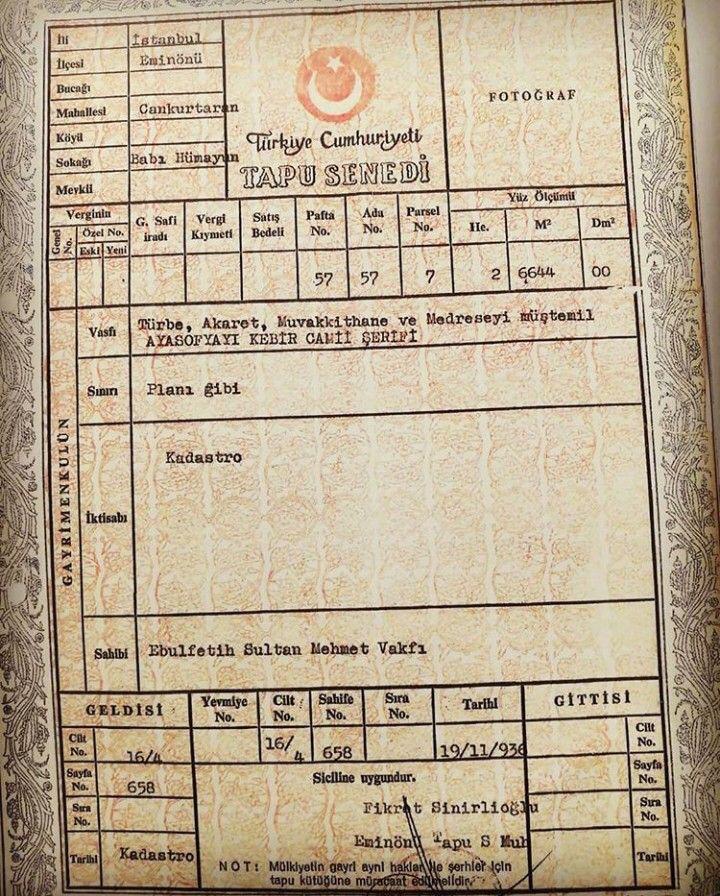 İli İstanbul
İlçesi Eminönü
Bucağı
Mahallesi Cankurtaran
Köyü
Sokağı Babı Hümayun
Mevkii
Türkiye Cumhuriyeti
TAPU SENEDİ
FOTOĞRAF
Verginin
Genel No. Özel No.
Eski Yeni
G. Safi iradı
Vergi Kıymeti
Satış Bedeli
Pafta No.
Ada No.
Parsel No.
Yüz Ölçümü
He. M² Dm²
57 57 7 2 6644 00
GAYRİMENKULÜN
Vasfı Türbe, Akaret, Muvakkithane ve Medreseyi müştemil
AYASOFYAYI KEBİR CAMİİ ŞERİFİ
Sınırı Planı gibi
İktisabı Kadastro
Sahibi Ebulfetih Sultan Mehmet Vakfı
GELDİSİ
Yevmiye No.
Cilt No.
Sahife No.
Sıra No.
Tarihi
GİTTİSİ
16/4 658 19/11/936
Cilt No. 16/4
Sayfa No. 658
Sıra No.
Tarihi Kadastro
Siciline uygundur.
Fikret Sinirlioğlu
Eminönü Tapu S Muh
NOT: Mülkiyetin gayri ayni haklar ile şerhler için
tapu kütüğüne müracaat edilmelidir.
Cilt No.
Sayfa No.
Sıra No.
Tarihi